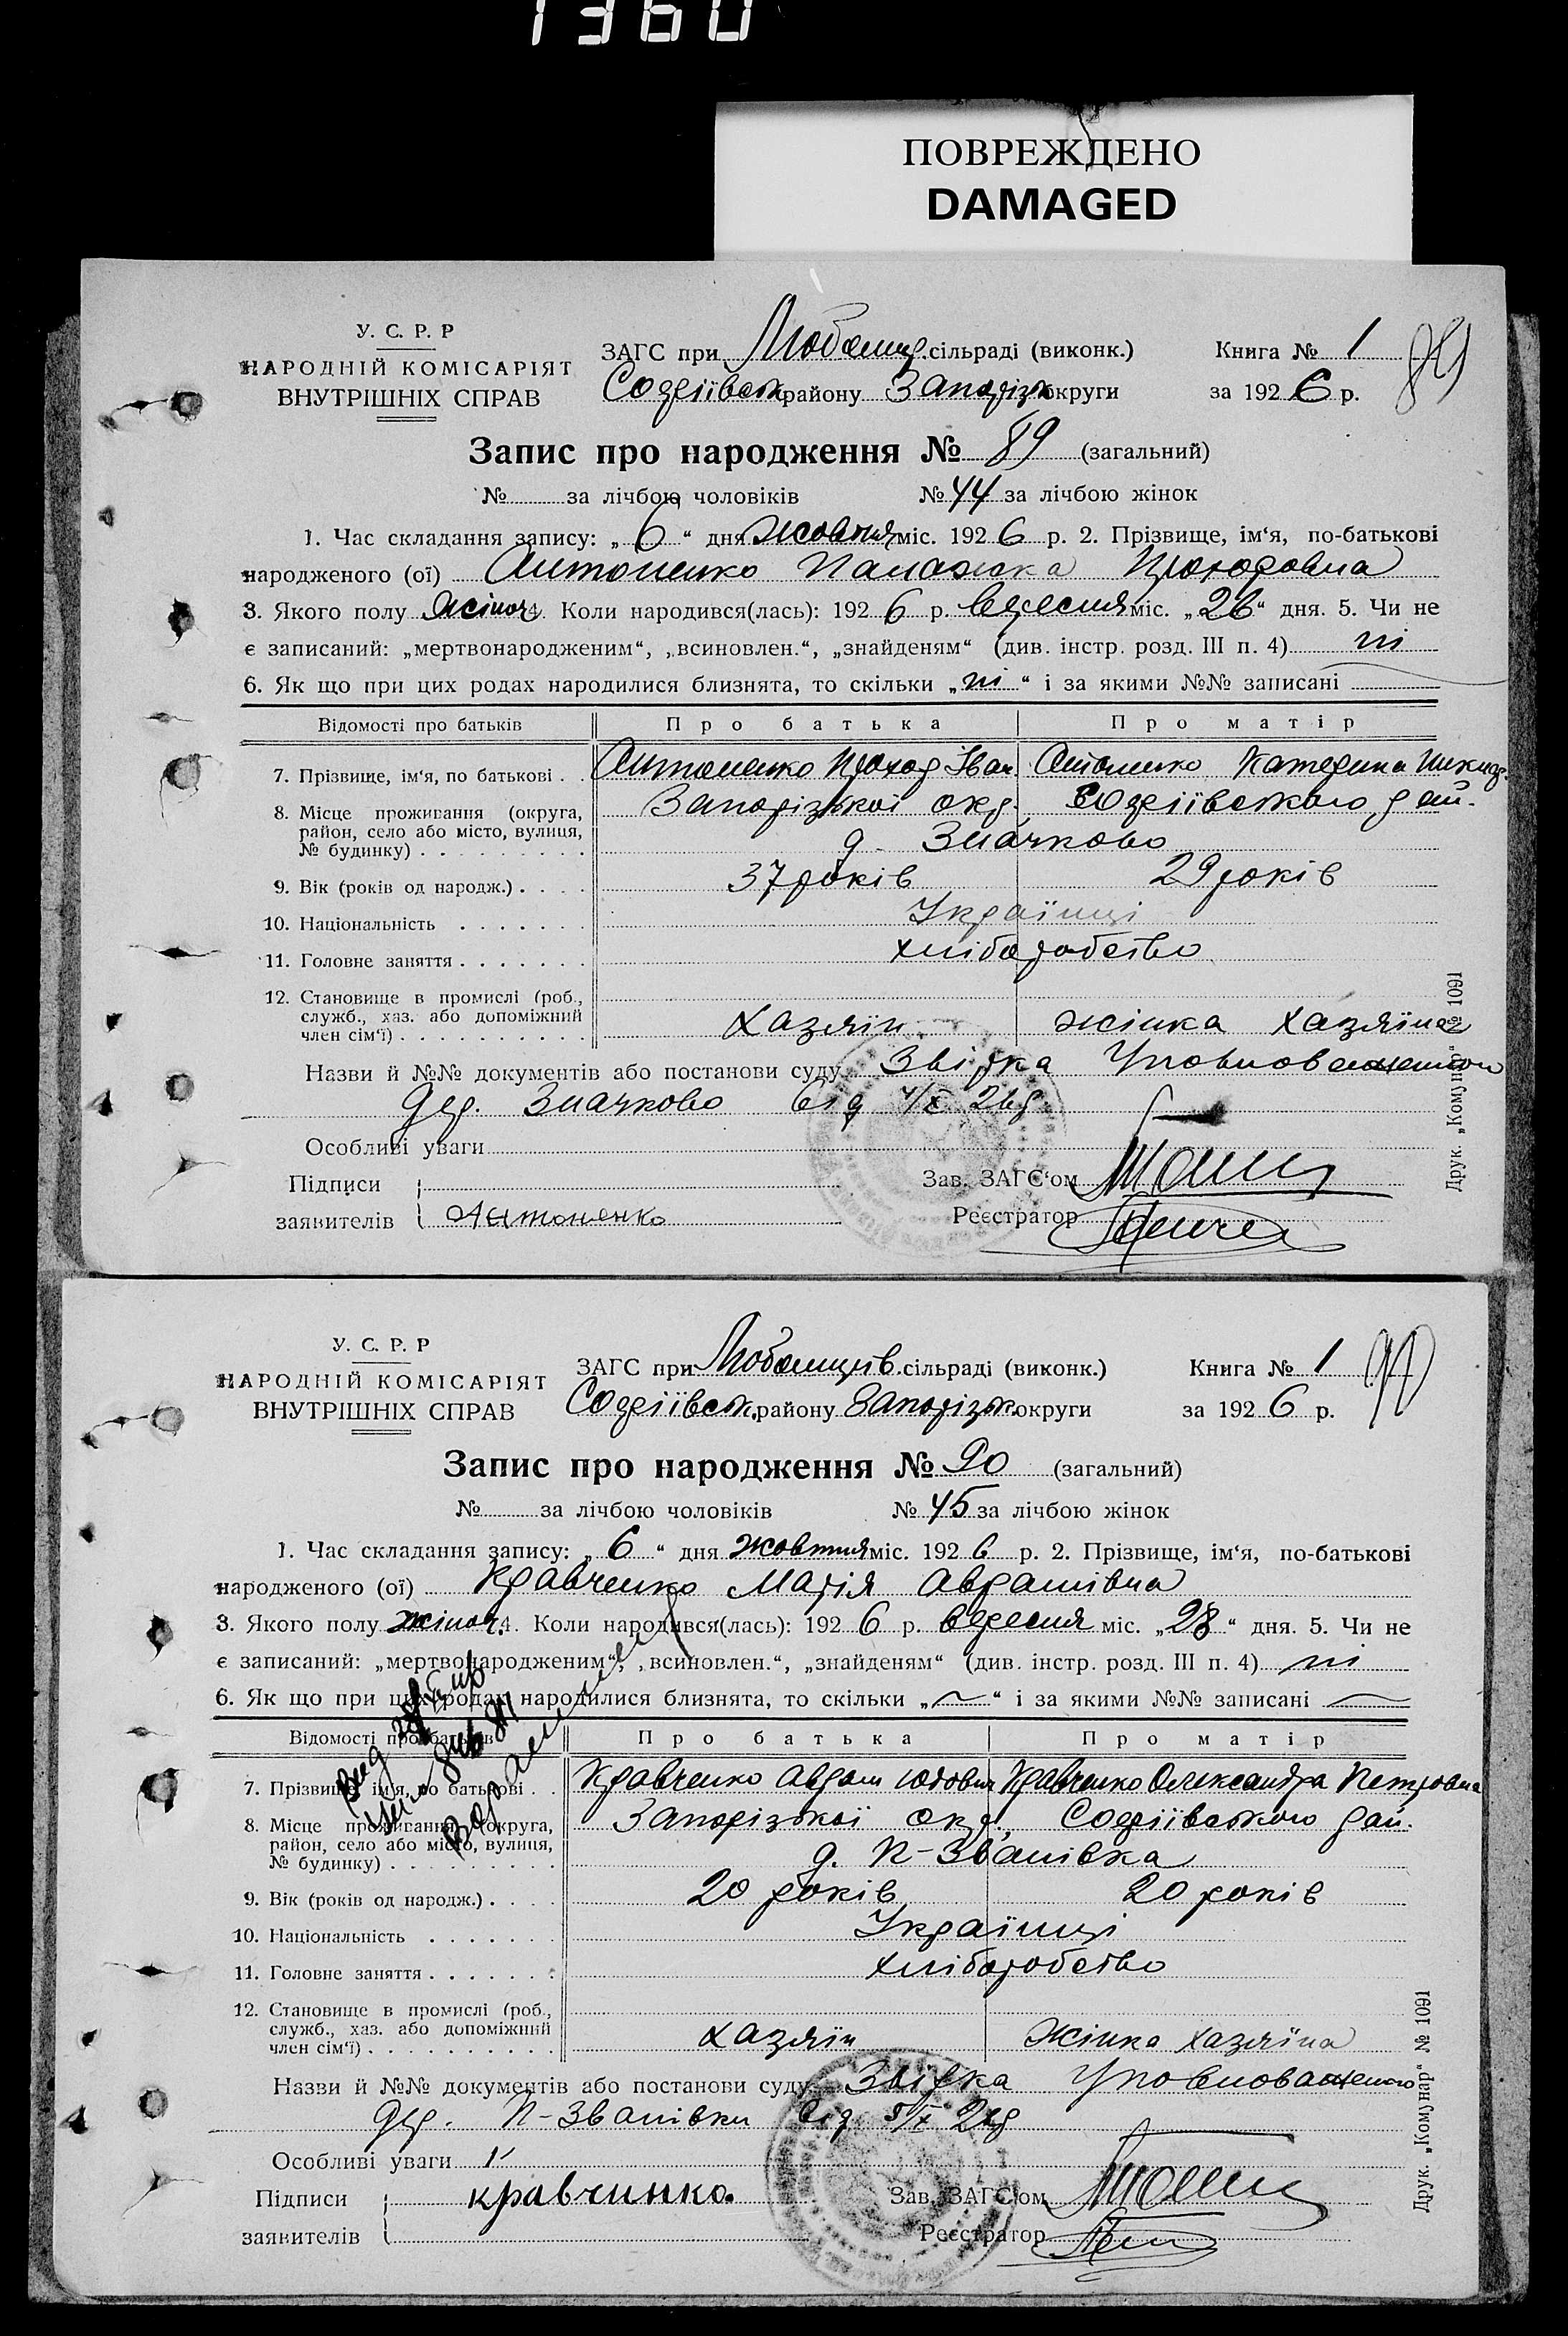 1360
ПОВРЕЖДЕНО
DAMAGED
У. С. Р. Р
НАРОДНІЙ КОМІСАРІЯТ
ВНУТРІШНІХ СПРАВ
ЗАГС при сільраді (виконк.) Книга № 1 89
Софіївськ району Запорізьк округи за 1926 р.
Запис про народження № 89 (загальний)
№ за лічбою чоловіків № 44 за лічбою жінок
1. Час складання запису: „6“ дня жовтня міс. 1926 р. 2. Прізвище, ім‘я, по-батькові
народженого (ої) Антоненко Палажка Прохоровна
3. Якого полу жіноч. 4. Коли народився(лась): 1926 р. вересня міс. „26“ дня. 5. Чи не
є записаний: „мертвонародженим“, „всиновлен.“, „знайденям“ (див. інстр. розд. III п. 4) ні
6. Як що при цих родах народилися близнята, то скільки „ні“ і за якими №№ записані
Відомості про батьків Про батька Про матір
7. Прізвище, ім‘я, по батькові . . Антоненко Прохор Іван. Антоненко Катерина Никиф.
8. Місце проживання (округа, Запорізької окр. Софіївського рай.
район, село або місто, вулиця,
№ будинку) . . . . . . . . . д. Значково
9. Вік (років од народж.) . . . . 37 років 29 років
10. Національність . . . . . . . Українці
11. Головне заняття . . . . . . . хліборобство
12. Становище в промислі (роб.,
служб., хаз. або допоміжний
член сім‘ї) . . . . . . . . . . хазяїн жінка хазяїна
Назви й №№ документів або постанови суду Звірка Уповноваженого
дер. Значково від 4/X 26р
Особливі уваги
Підписи Зав. ЗАГС‘ом
заявителів Антоненко Реєстратор
Друк. „Комунар“ № 1091
У. С. Р. Р
НАРОДНІЙ КОМІСАРІЯТ
ВНУТРІШНІХ СПРАВ
ЗАГС при сільраді (виконк.) Книга № 1 90
Софіївськ. району Запорізьк. округи за 1926 р.
Запис про народження № 90 (загальний)
№ за лічбою чоловіків № 45 за лічбою жінок
1. Час складання запису: „6“ дня жовтня міс. 1926 р. 2. Прізвище, ім‘я, по-батькові
народженого (ої) Кравченко Марія Аврамівна
3. Якого полу жіноч. 4. Коли народився(лась): 1926 р. вересня міс. „28“ дня. 5. Чи не
є записаний: „мертвонародженим“, „всиновлен.“, „знайденям“ (див. інстр. розд. III п. 4) ні
6. Як що при цих родах народилися близнята, то скільки „~“ і за якими №№ записані
Відомості про батьків Про батька Про матір
7. Прізвище, ім‘я, по батькові . . Кравченко Аврам Юхович Кравченко Олександра Петровна
8. Місце проживання (округа, Запорізької окр. Софіївського рай.
район, село або місто, вулиця,
№ будинку) . . . . . . . . . д. П-Званівка
9. Вік (років од народж.) . . . . 20 років 20 років
10. Національність . . . . . . . Українці
11. Головне заняття . . . . . . . хліборобство
12. Становище в промислі (роб.,
служб., хаз. або допоміжний
член сім‘ї) . . . . . . . . . . хазяїн жінка хазяїна
Назви й №№ документів або постанови суду Звірка Уповноваженого
дер. П-Званівки від 5/X 26р
Особливі уваги
Підписи кравчинко. Зав. ЗАГС‘ом
заявителів Реєстратор
Друк. „Комунар“ № 1091